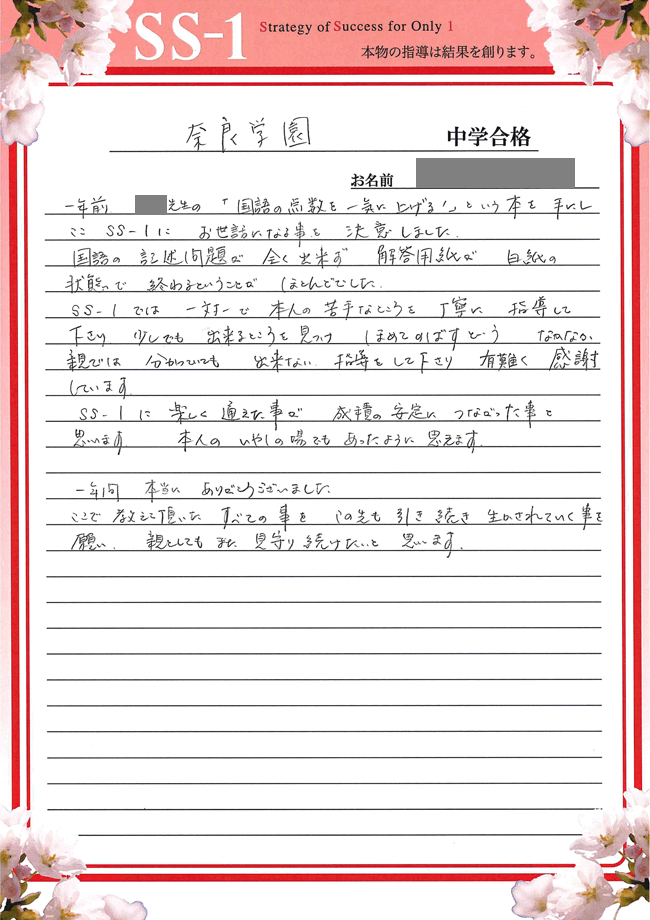 SS-1
Strategy of Success for Only 1
本物の指導は結果を創ります。
奈良学園 中学合格
お名前
一年前 先生の「国語の点数を一気に上げる」という本を手にし
ここ SS-1に お世話になる事を 決意しました。
国語の 記述問題が 全く出来ず 解答用紙が 白紙の
状態で 終わるということが ほとんどでした。
SS-1では 一対一で 本人の苦手なところを 丁寧に 指導して
下さり 少しでも 出来るところを見つけ ほめてのばすという なかなか
親では 分かっていても 出来ない 指導をして下さり 有難く 感謝
しています。
SS-1に 楽しく 通えた事が 成積の安定に つながった事と
思います。 本人の いやしの場でも あったように 思えます。
一年間 本当に ありがとうございました。
ここで 教えて頂いた すべての事を この先も 引き続き 生かされていく事を
願い、 親としても また 見守り続けたいと 思います。